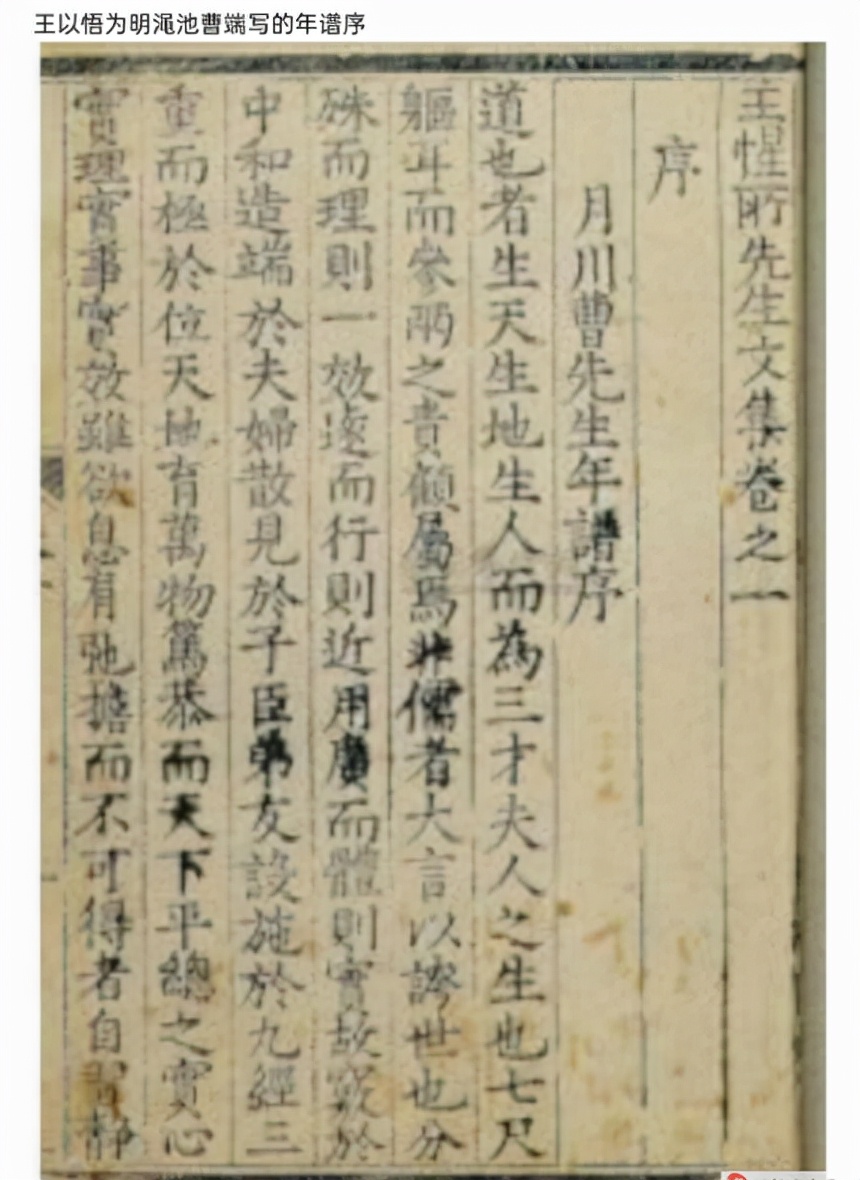 王以悟为明渑池曹端写的年谱序
王惺所先生文集卷之一
序
月川曹先生年譜序
道也者生天生地生人而為三才夫人之生也七尺
軀耳而參兩之貴顧屬焉非儒者大言以誇世也分
殊而理則一效遠而行則近用廣而體則實故竅於
中和造端於夫婦散見於子臣弟友設施於九經三
重而極於位天地育萬物篤恭而天下平總之實心
實理實事實效雖欲息有弛擔而不可得者自習靜